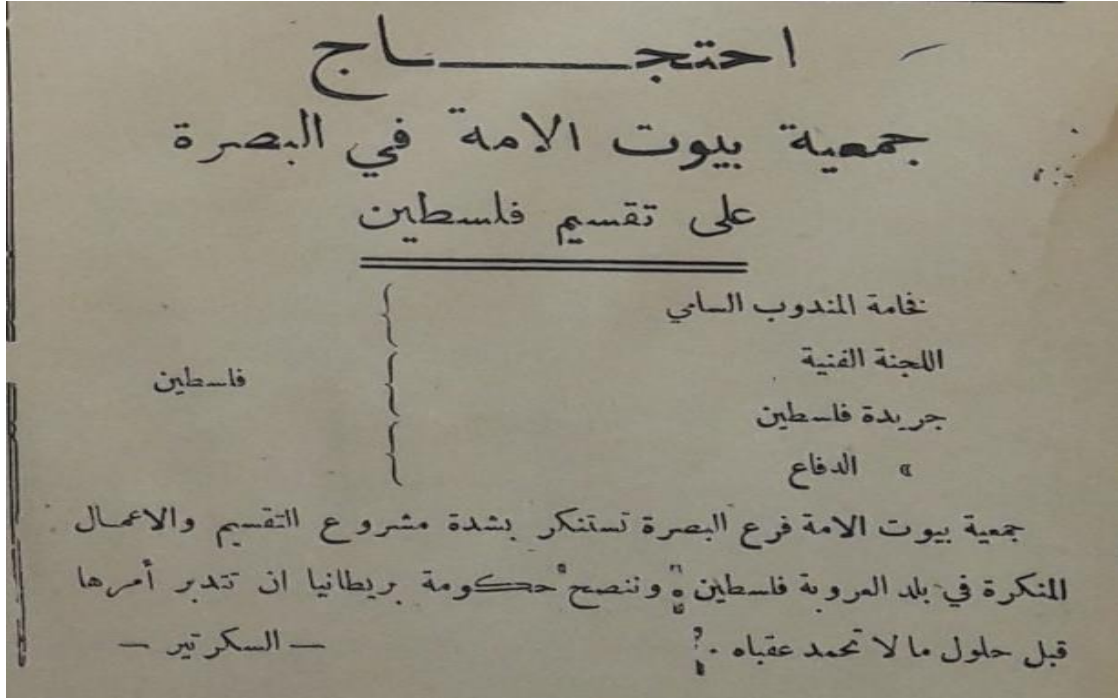 احتجــــاج
جمعية بيوت الامة في البصرة
على تقسيم فلسطين
فخامة المندوب السامي
اللجنة الفنية
فلسطين
جريدة فلسطين
» الدفاع
جمعية بيوت الامة فرع البصرة تستنكر بشدة مشروع التقسيم والاعمــال
المنكرة في بلد العروبة فلسطين وننصح حكومة بريطانيا ان تتدبر أمرها
قبل حلول ما لا تحمد عقباه . — السكرتير —